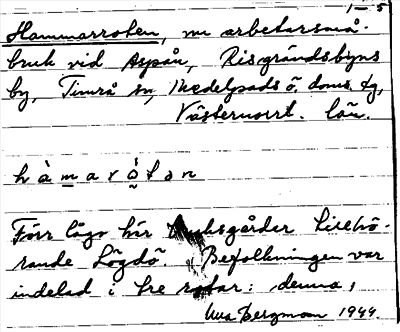 1-5
Hammarroten, nu arbetarsmå-
bruk vid Aspån, Risgrändsbyns
by, Timrå sn, Medelpads ö. doms. tg,
Västernorrl. län.
h à m a r ò t ə n
Förr lågo här bruksgårdar tillhö-
rande Lögdö. Befolkningen var
indelad i tre rotar: denna,
Bergman 1944.